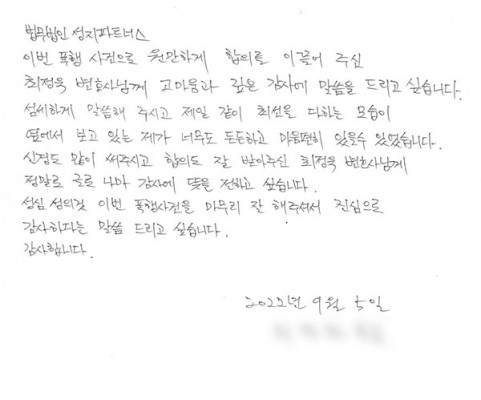 법무법인 성지파트너스
이번 폭행 사건으로 원만하게 합의를 이끌어 주신
최정욱 변호사님께 고마움과 깊은 감사에 말씀을 드리고 싶습니다.
섬세하게 말씀해 주시고 제일 같이 최선을 다하는 모습이
옆에서 보고 있는 제가 너무도 든든하고 마음편히 있을수 있었습니다.
신경도 많이 써주시고 합의도 잘 받아주신 최정욱 변호사님께
정말로 글로 나마 감사에 뜻을 전하고 싶습니다.
성심 성의것 이번 폭행사건을 마무리 잘 해주셔서 진심으로
감사하다는 말씀 드리고 싶습니다.
감사합니다.
2022년 9월 5일